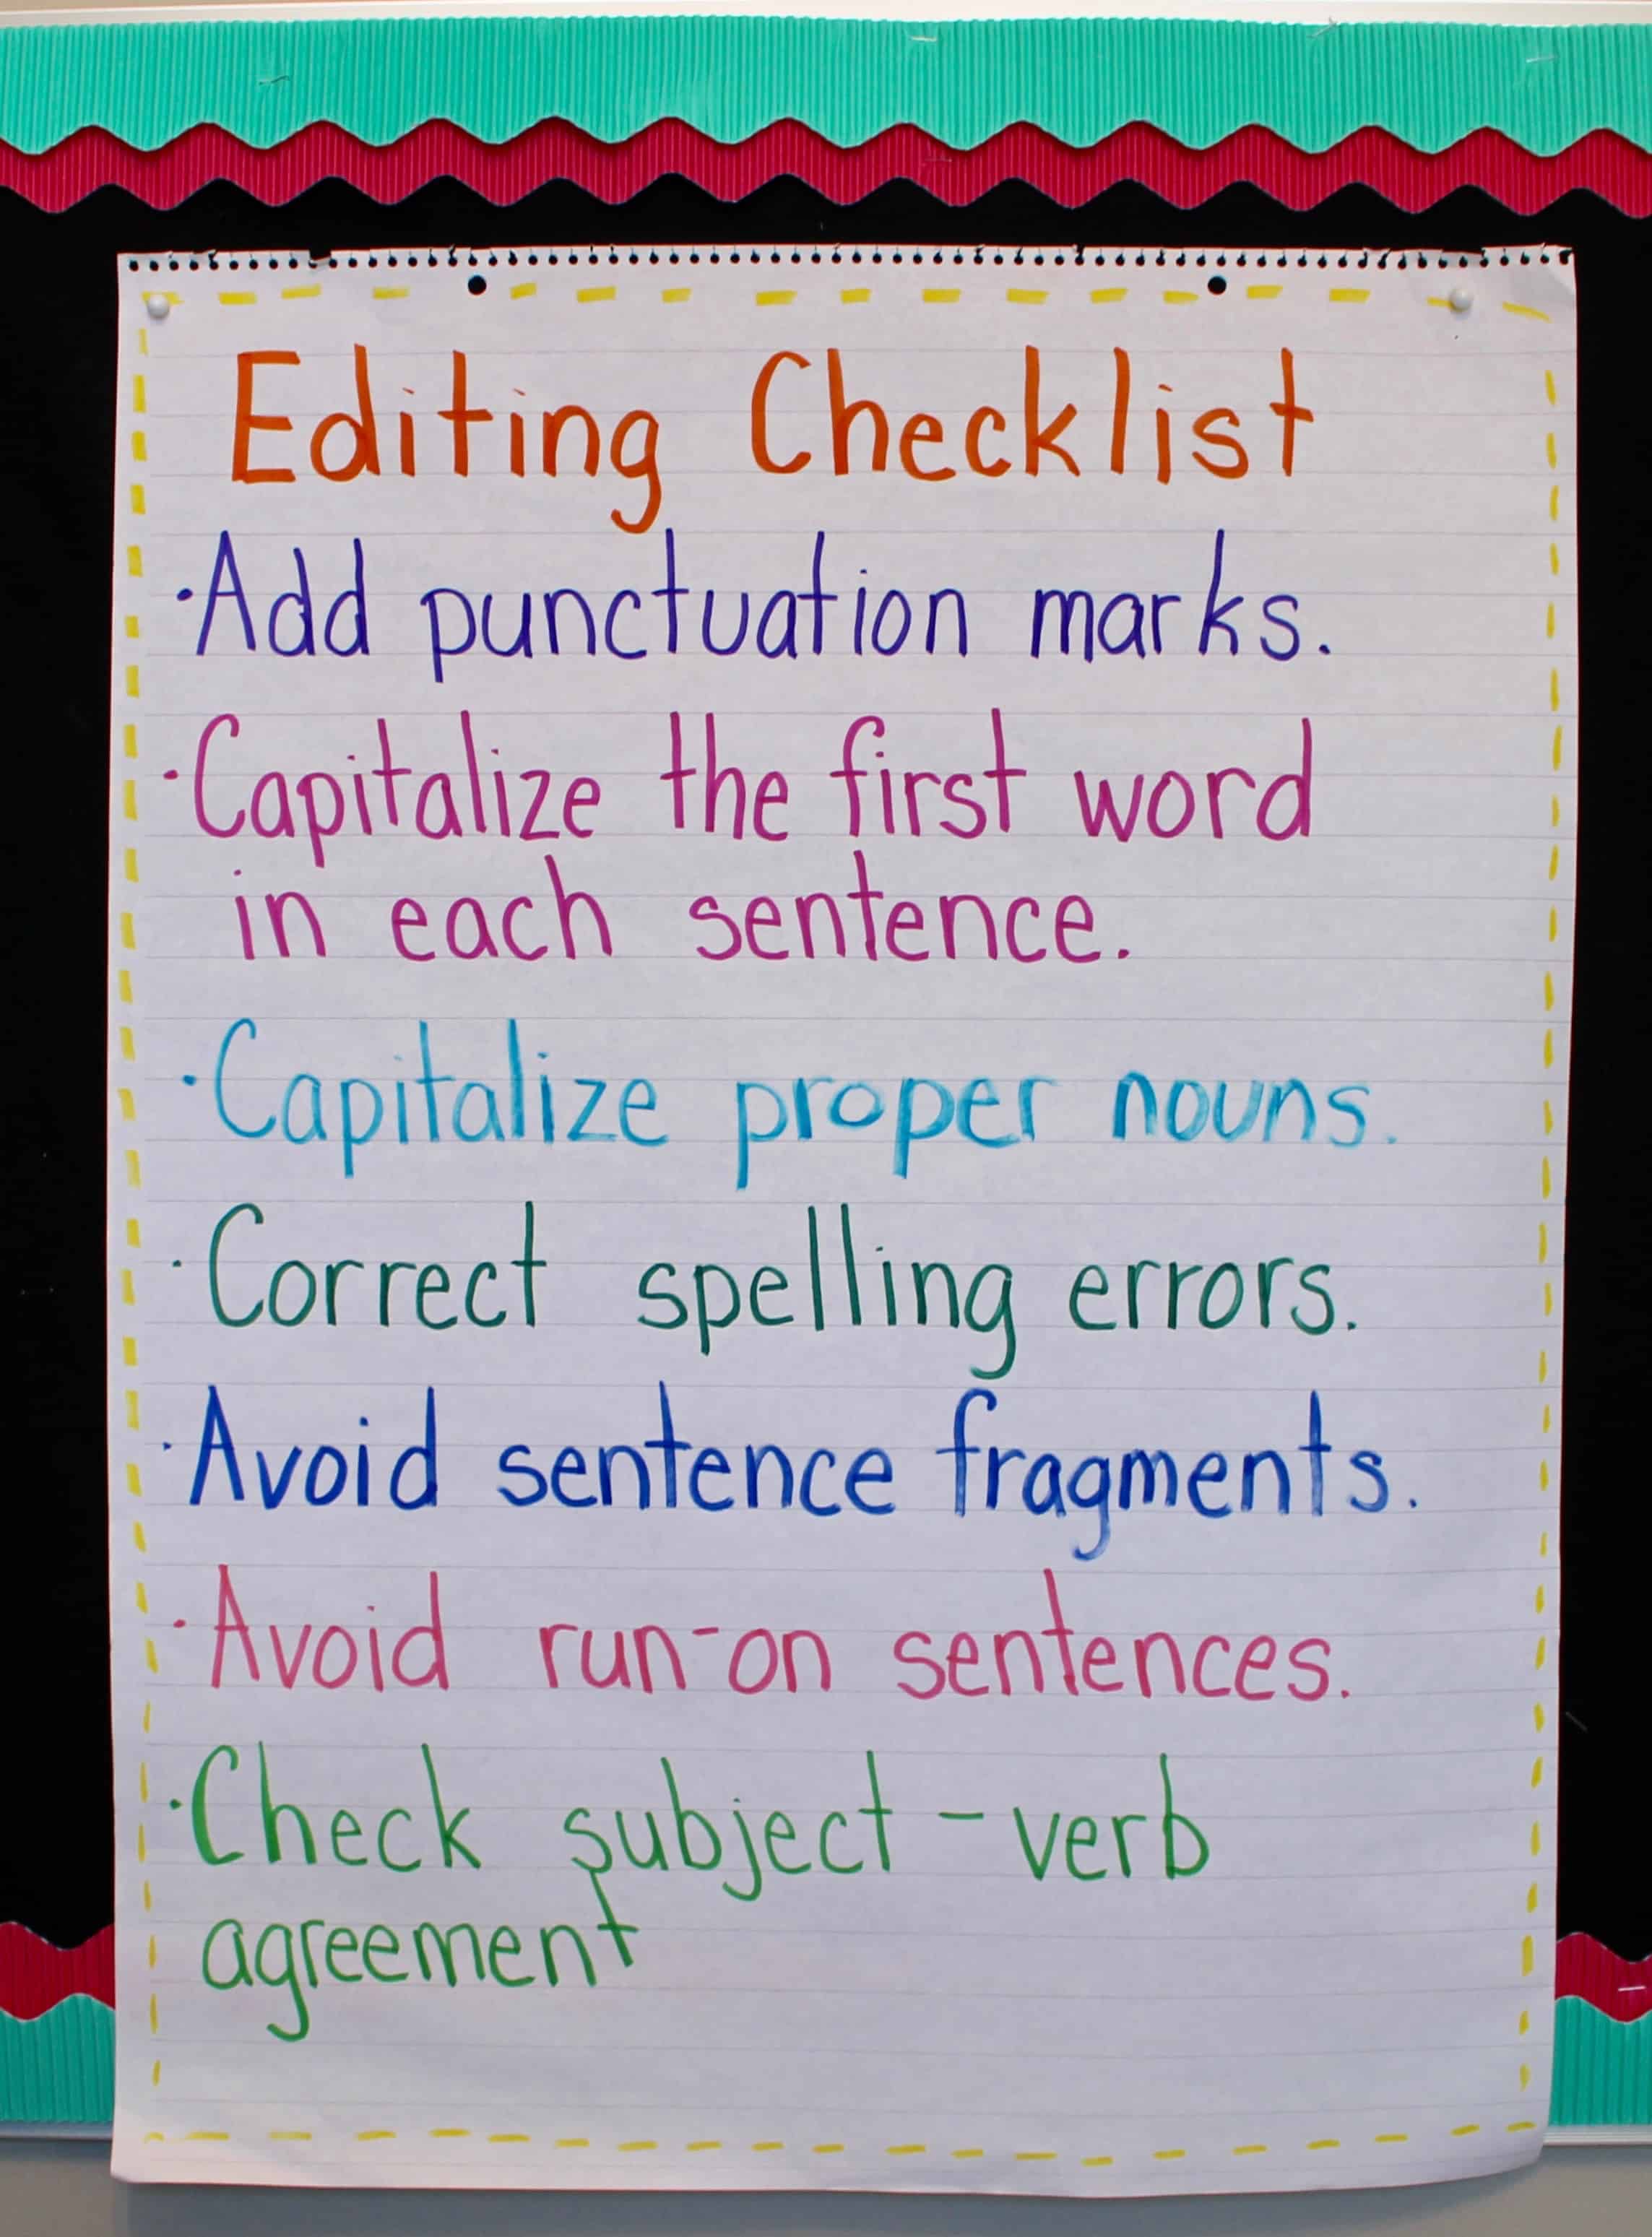 Editing Checklist
·Add punctuation marks.
·Capitalize the first word
in each sentence.
·Capitalize proper nouns.
·Correct spelling errors.
·Avoid sentence fragments.
·Avoid run-on sentences.
·Check subject-verb
agreement